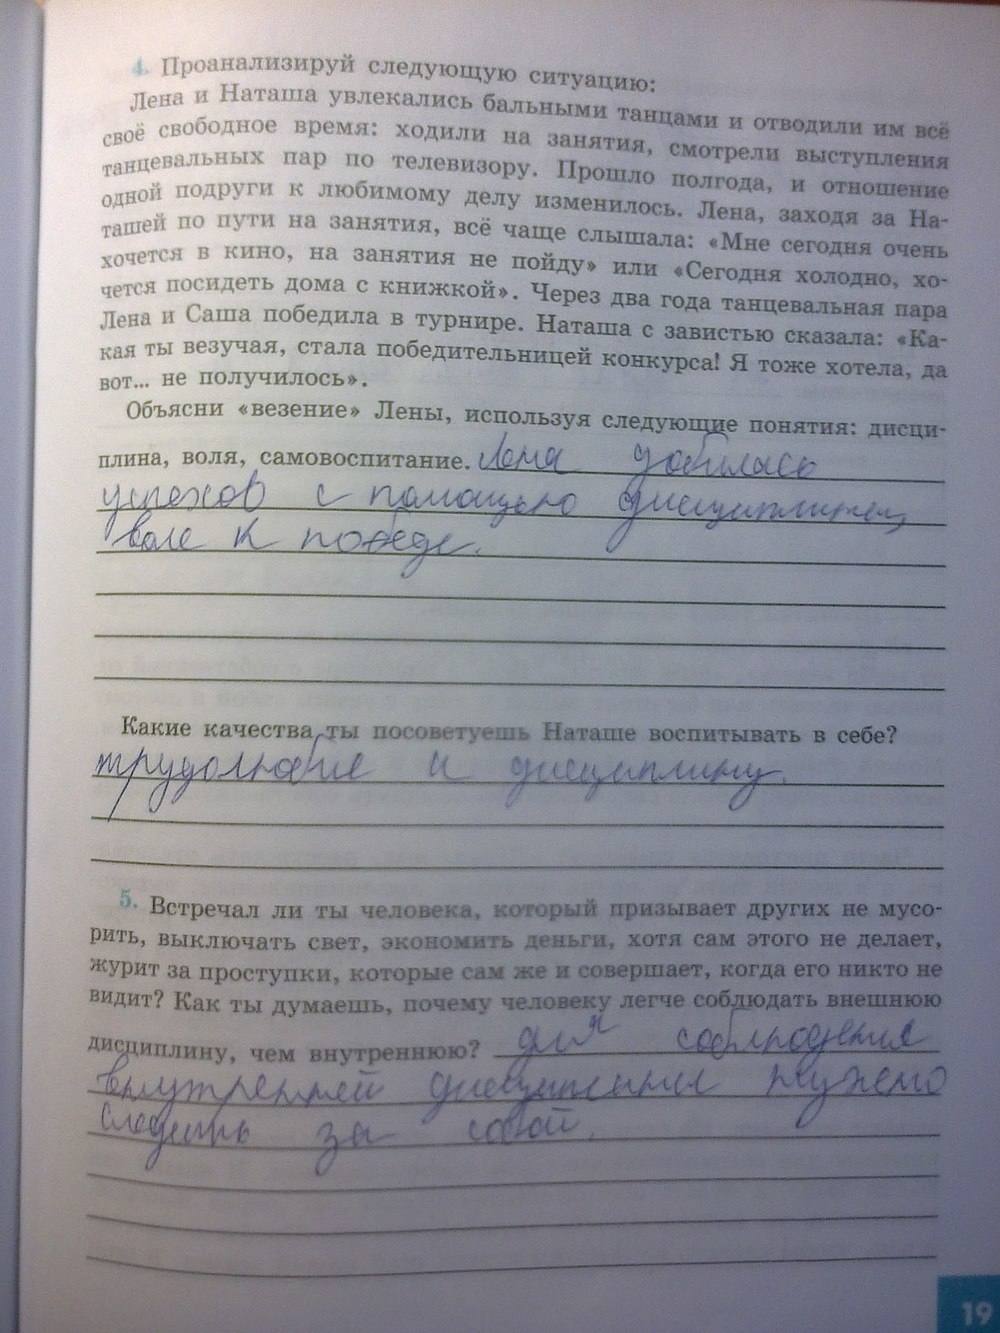 4. Проанализируй следующую ситуацию:
Лена и Наташа увлекались бальными танцами и отводили им всё
своё свободное время: ходили на занятия, смотрели выступления
танцевальных пар по телевизору. Прошло полгода, и отношение
одной подруги к любимому делу изменилось. Лена, заходя за На-
ташей по пути на занятия, всё чаще слышала: «Мне сегодня очень
хочется в кино, на занятия не пойду» или «Сегодня холодно, хо-
чется посидеть дома с книжкой». Через два года танцевальная пара
Лена и Саша победила в турнире. Наташа с завистью сказала: «Ка-
кая ты везучая, стала победительницей конкурса! Я тоже хотела, да
вот... не получилось».
Объясни «везение» Лены, используя следующие понятия: дисци-
плина, воля, самовоспитание. Лена добилась
успехов с помощью дисциплины,
воле к победе.
Какие качества ты посоветуешь Наташе воспитывать в себе?
трудолюбие и дисциплину.
5. Встречал ли ты человека, который призывает других не мусо-
рить, выключать свет, экономить деньги, хотя сам этого не делает,
журит за проступки, которые сам же и совершает, когда его никто не
видит? Как ты думаешь, почему человеку легче соблюдать внешнюю
дисциплину, чем внутреннюю? для соблюдения
внутренней дисциплины нужно
следить за собой.
19